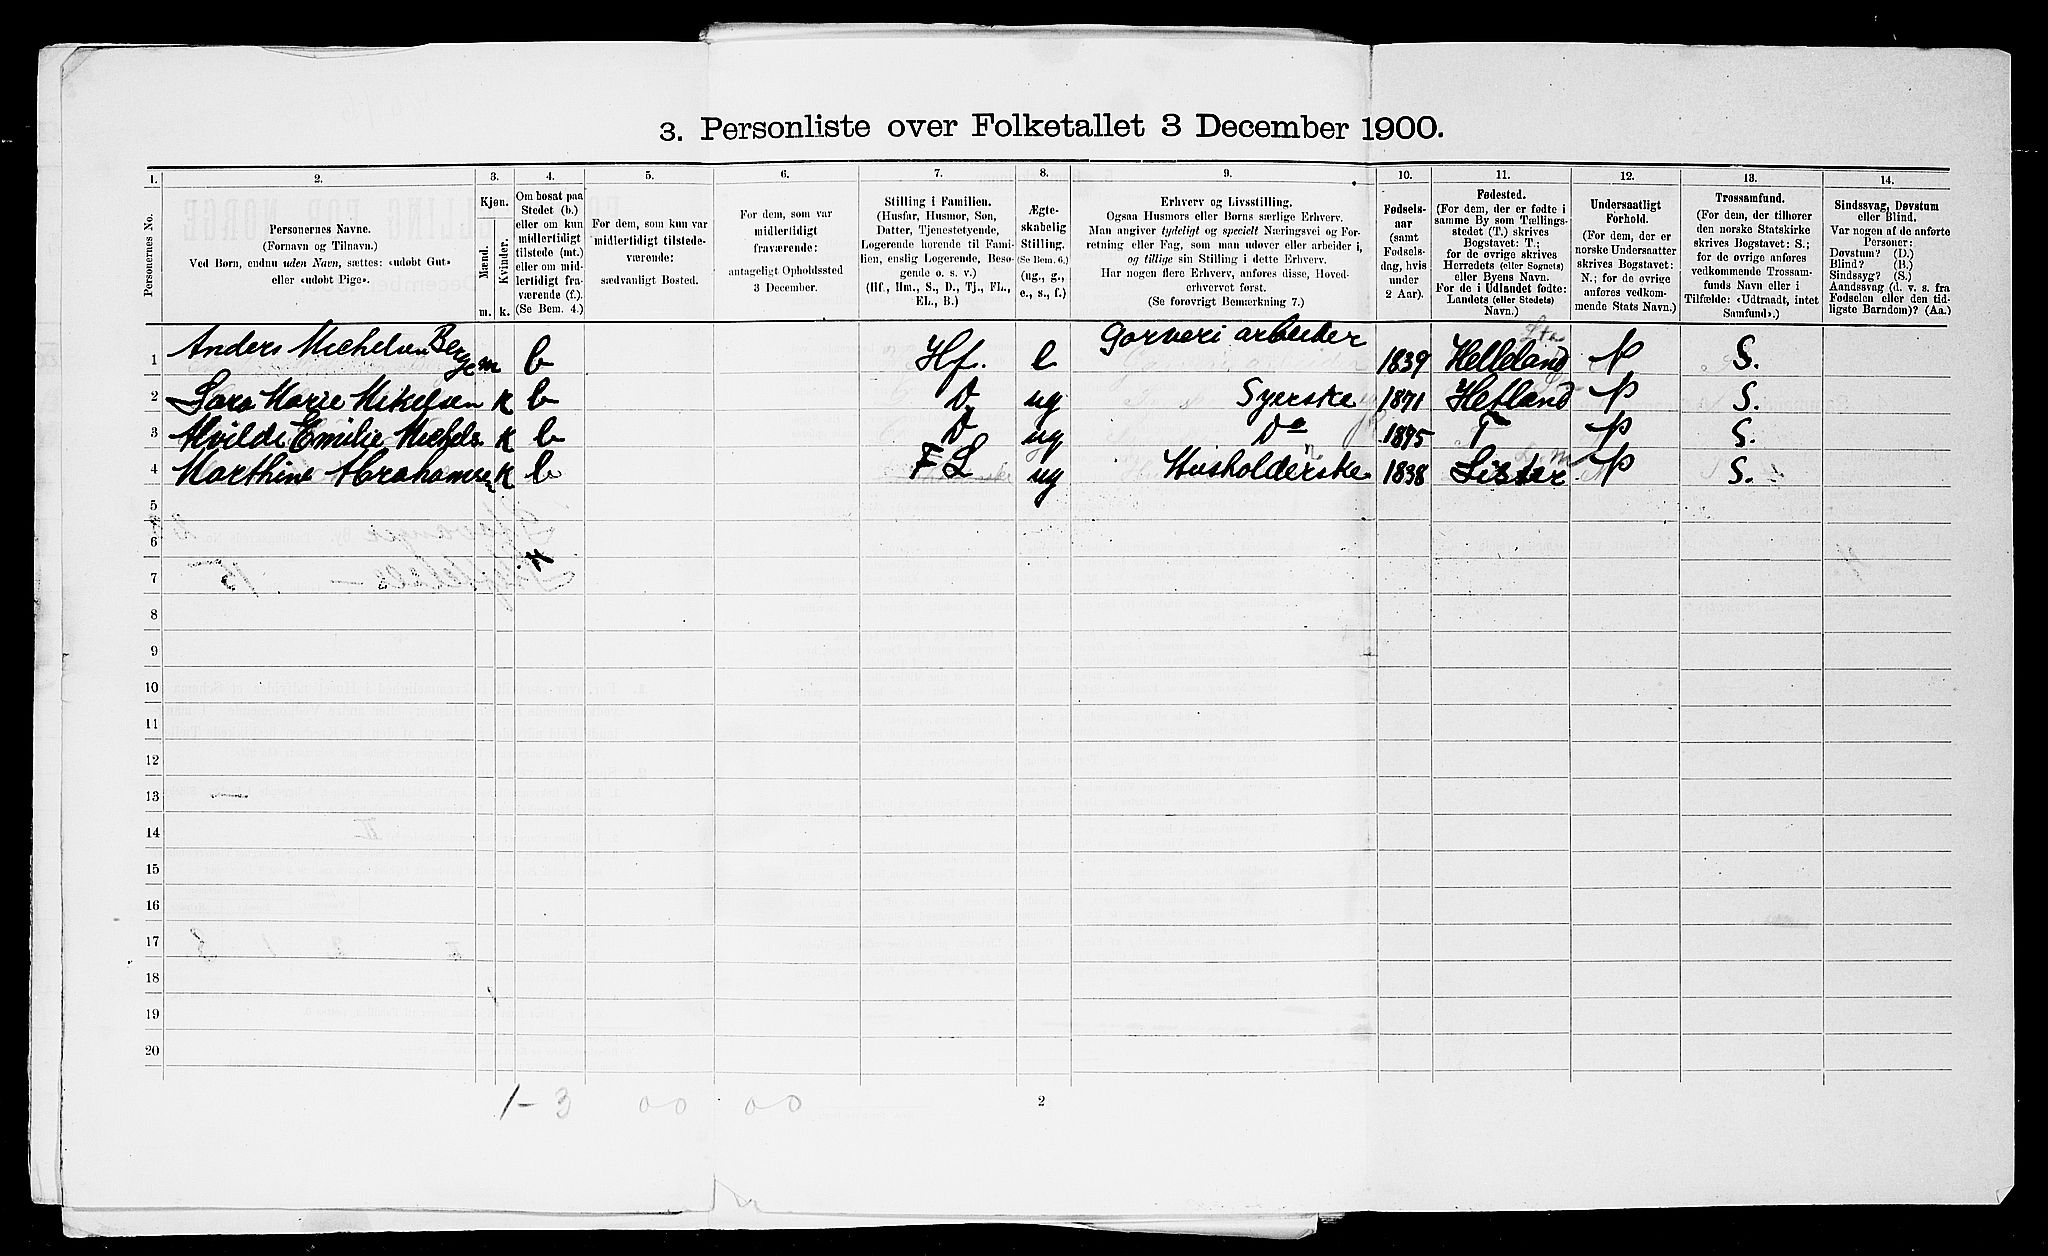 3. Personliste over Folketallet 3 December 1900.
1. 2. 3. 4. 5. 6. 7. 8. 9. 10. 11. 12. 13. 14.
Personernes No.
Personernes Navne.
(Fornavn og Tilnavn.)
Ved Børn, endnu uden Navn, sættes: «udøbt Gut»
eller «udøbt Pige».
Kjøn.
Mænd.
Kvinder.
m. k.
Om bosat paa
Stedet (b.)
eller om kun
midlertidigt
tilstede (mt.)
eller om mid-
lertidigt fra-
værende (f.).
(Se Bem. 4.)
For dem, som kun var
midlertidigt tilstede-
værende:
sædvanligt Bosted.
For dem, som var
midlertidigt
fraværende:
antageligt Opholdssted
3 December.
Stilling i Familien.
(Husfar, Husmor, Søn,
Datter, Tjenestetyende,
Logerende hørende til Fami-
lien, enslig Logerende, Besø-
gende o. s. v.)
(Hf., Hm., S., D., Tj., FL.,
EL., B.)
Ægte-
skabelig
Stilling.
(Se Bem. 6.)
(ug., g.,
e., s., f.)
Erhverv og Livsstilling.
Ogsaa Husmors eller Børns særlige Erhverv.
Man angiver tydeligt og specielt Næringsvei og For-
retning eller Fag, som man udøver eller arbeider i,
og tillige sin Stilling i dette Erhverv.
Har nogen flere Erhverv, anføres disse, Hoved-
erhvervet først.
(Se forøvrigt Bemærkning 7.)
Fødsels-
aar
(samt
Fødsels-
dag, hvis
under
2 Aar).
Fødested.
(For dem, der er fødte i
samme By som Tællings-
stedet (T.) skrives
Bogstavet: T.;
for de øvrige skrives
Herredets (eller Sognets)
eller Byens Navn.
For de i Udlandet fødte:
Landets (eller Stedets)
Navn.)
Undersaatligt
Forhold.
(For dem, der er
norske Undersaatter
skrives Bogstavet:
N.; for de øvrige
anføres vedkom-
mende Stats Navn.)
Trossamfund.
(For dem, der tilhører
den norske Statskirke
skrives Bogstav: S.;
for de øvrige anføres
vedkommende Trossam-
funds Navn eller i
Tilfælde: «Udtraadt, intet
Samfund».)
Sindssvag, Døvstum
eller Blind.
Var nogen af de anførte
Personer:
Døvstum? (D.)
Blind? (B.)
Sindssyg? (S.)
Aandssvag (d. v. s. fra
Fødselen eller den tid-
ligste Barndom)? (Aa.)
1 Anders Michelsen Berge m b Hf. e Garveri arbeider 1839 Helleland N S.
2 Sara Marie Mikelsen k b D ug Syerske 1871 Hetland N S.
3 Alvilde Emilie Michels. k b D ug Do 1875 T N S.
4 Marthine Abrahamsen k b F L ug Husholderske 1838 Lister N S.
5
6
7
8
9
10
11
12
13
14
15
16
17
18
19
20
1-3 00 00
2